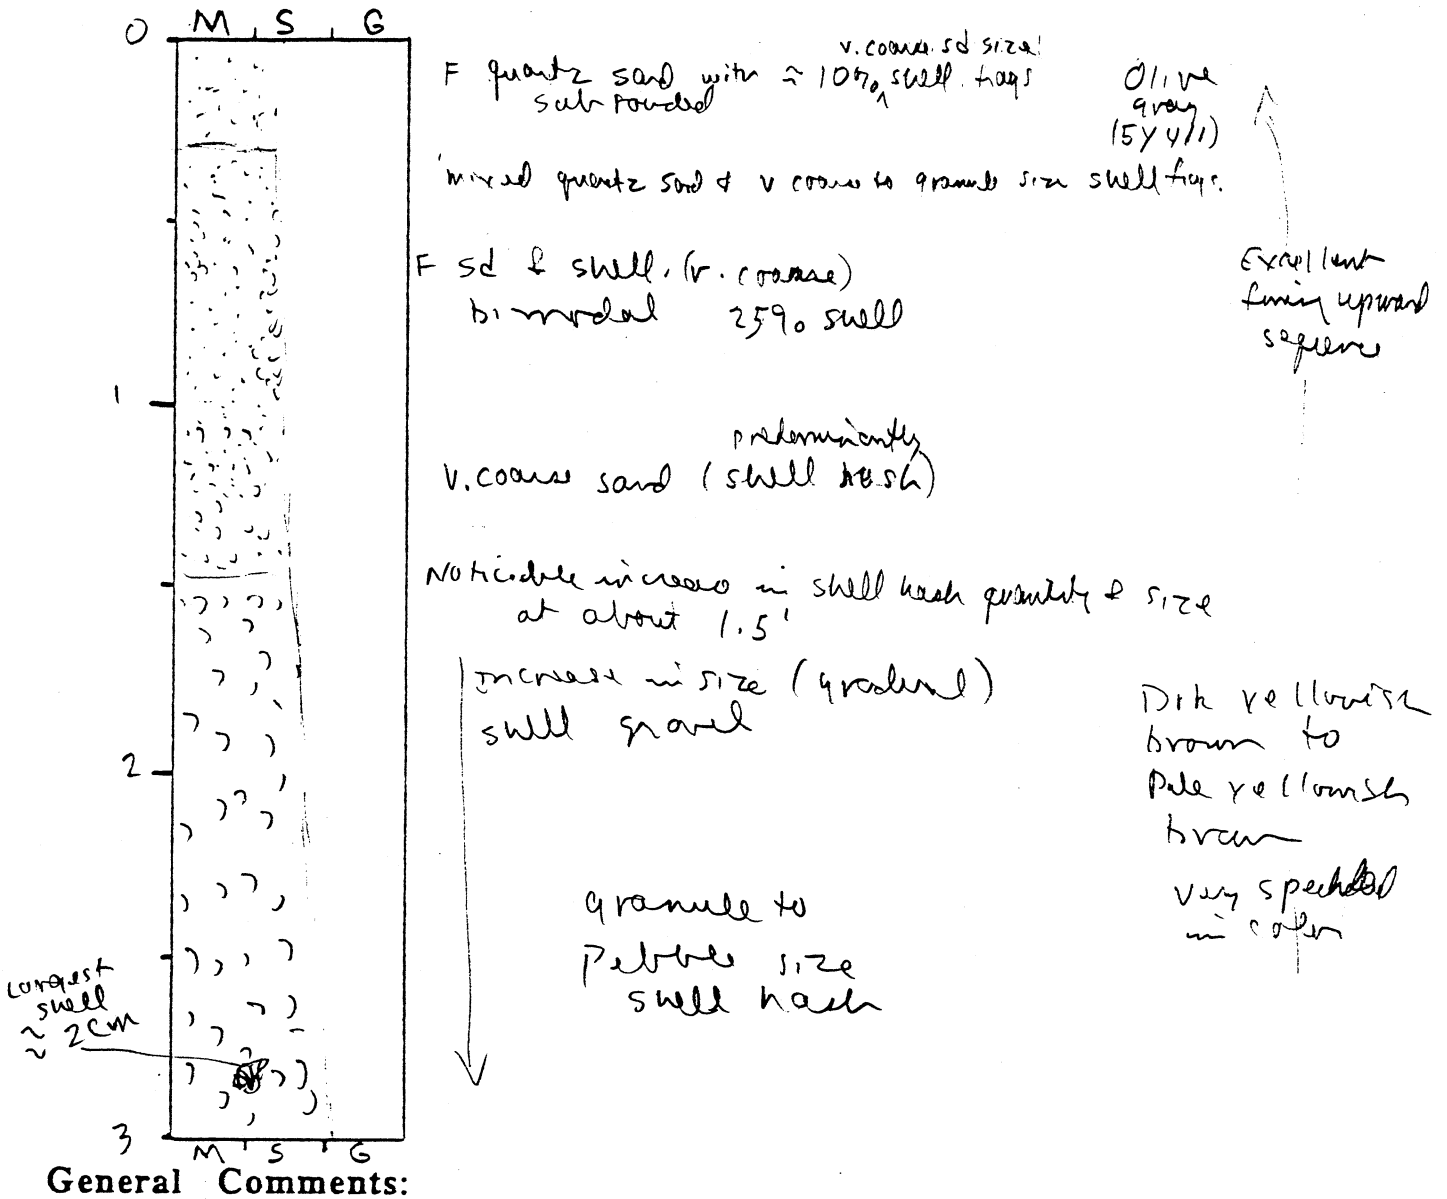 0 M S G
v. coarse sd size
F quartz sand with ≈ 10% shell frags
sub rounded
Olive
gray
(5Y 4/1)
mixed quartz sand & v coarse to granule size shell frags.
F sd & shell. (v. coarse)
bimodal 25% shell
Excellent
fining upward
sequence
1
predominantly
V. coarse sand (shell hash)
Noticable increase in shell hash quantity & size
at about 1.5'
Increase in size (gradual)
shell gravel
Drk yellowish
brown to
Pale yellowish
brown
very speckled
in color
2
granule to
pebble size
shell hash
Largest
shell
≈ 2cm
3
M S G
General Comments: